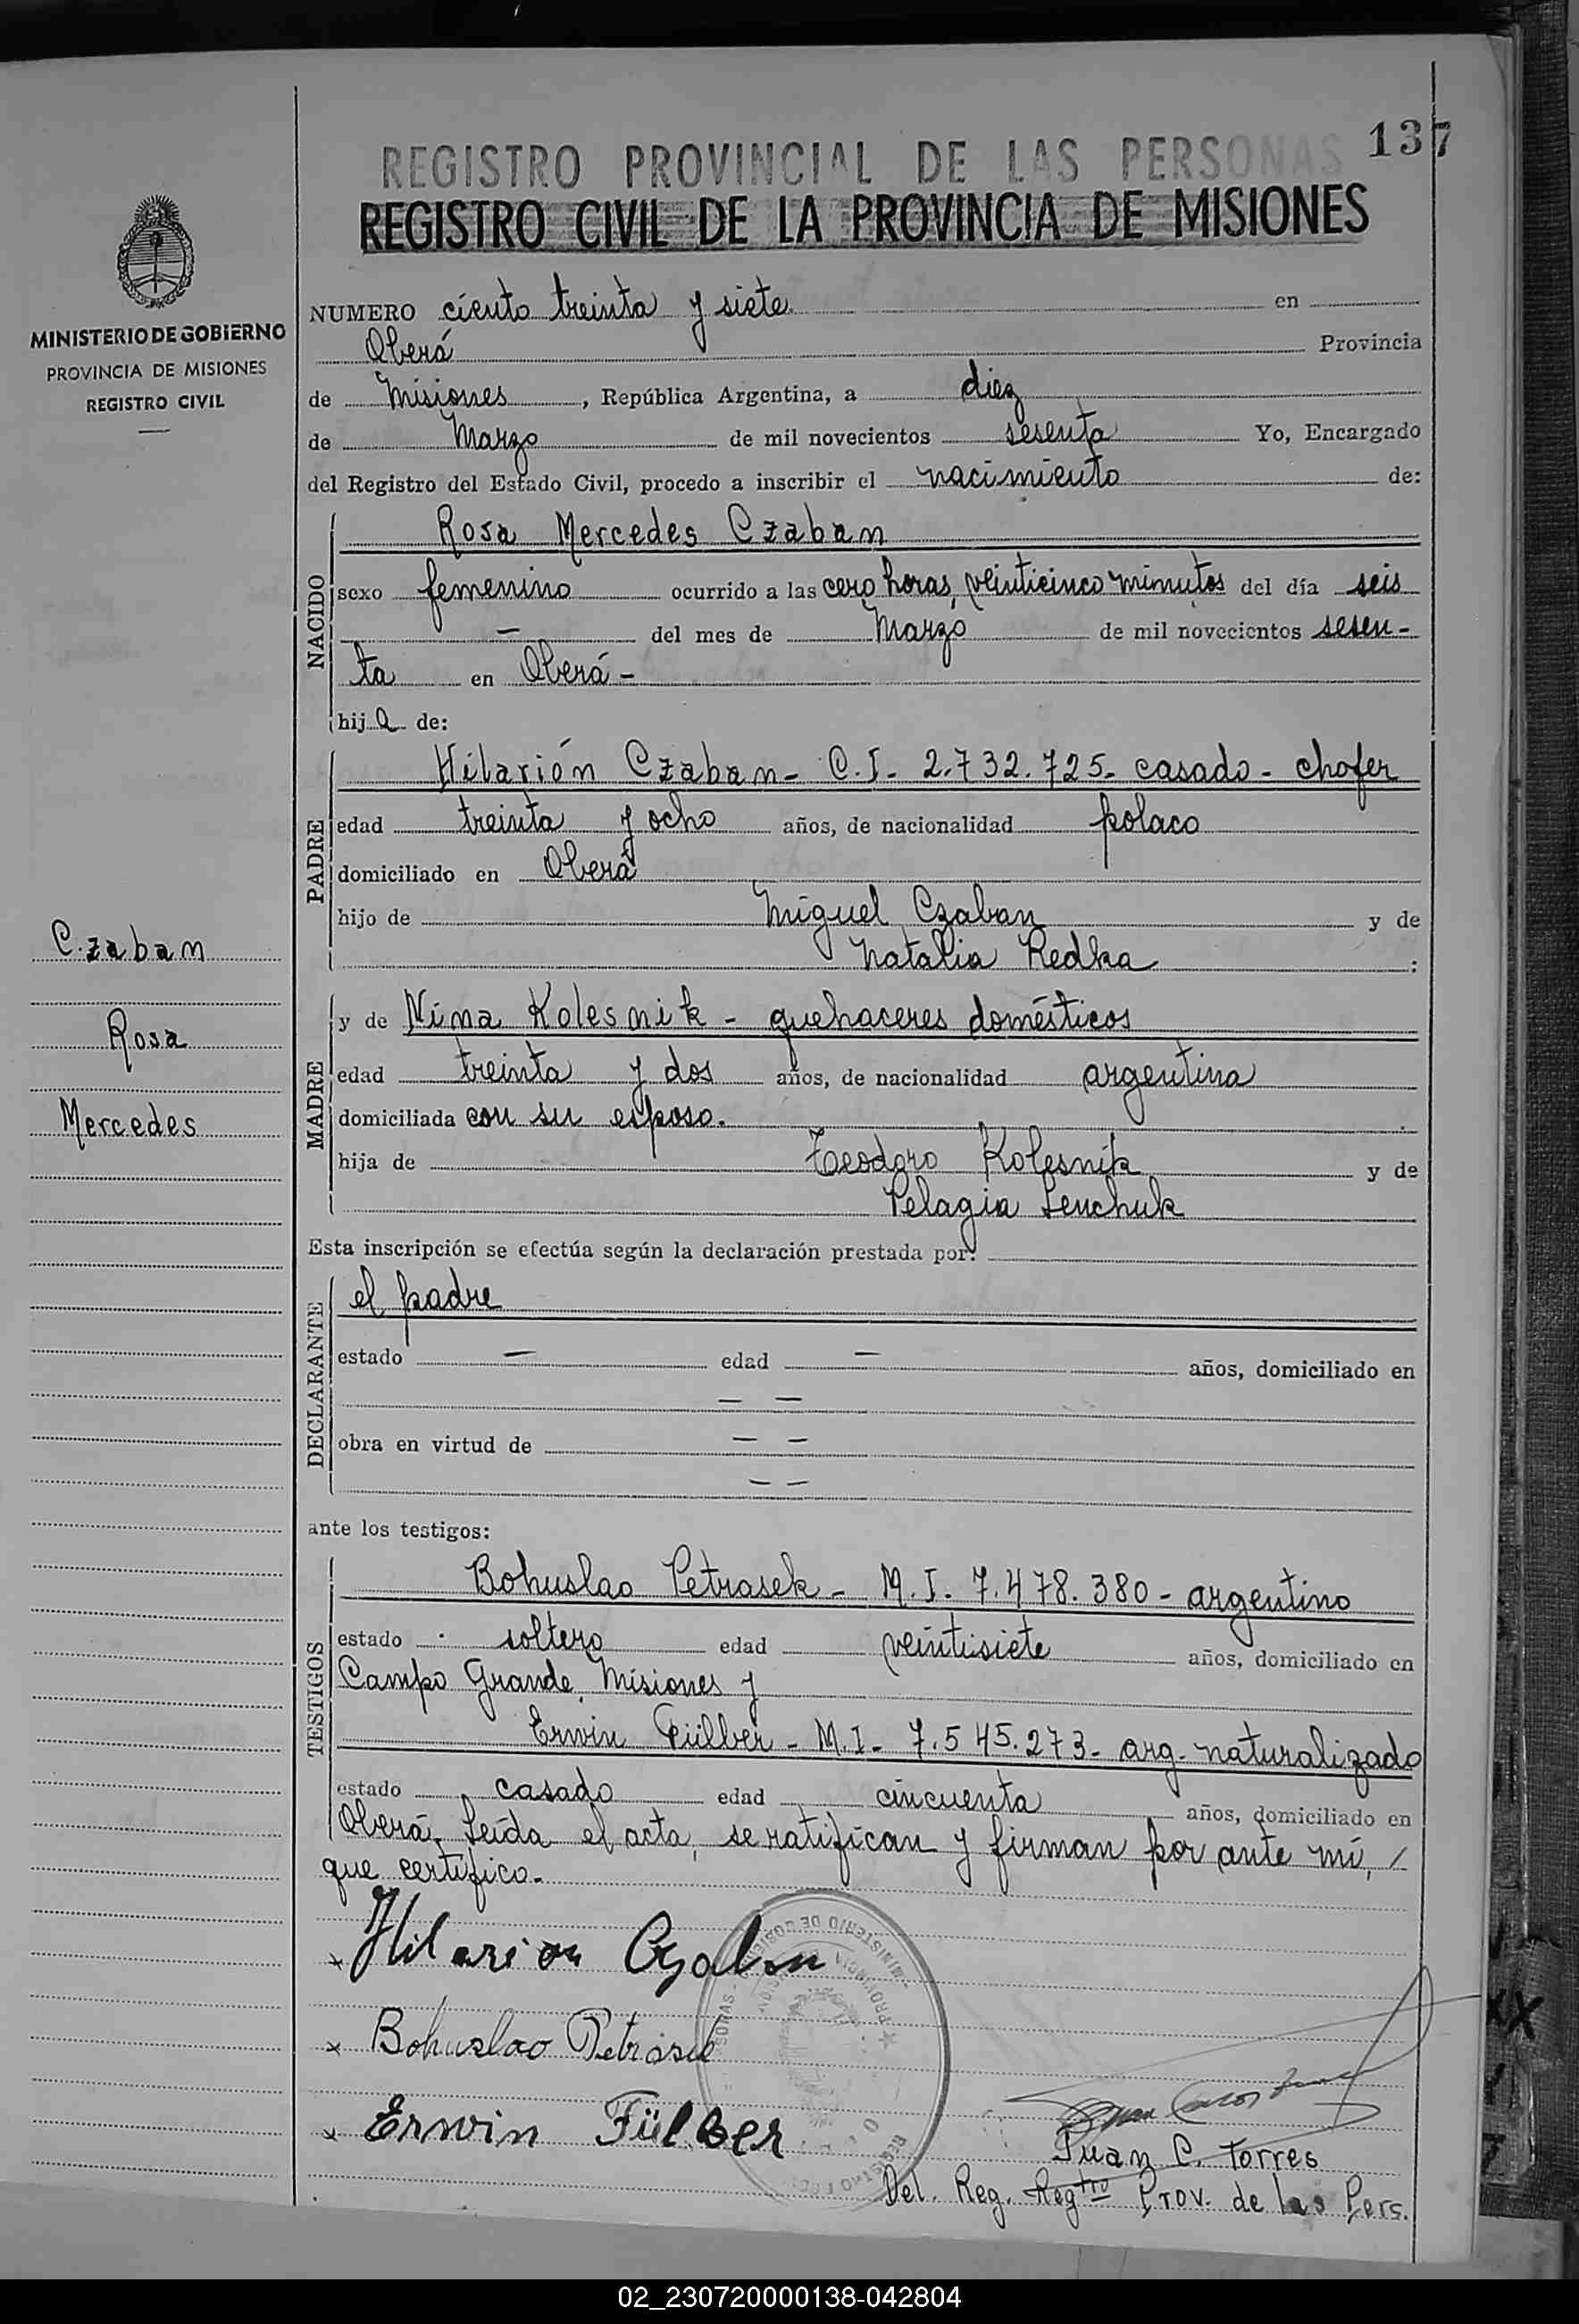 137
REGISTRO PROVINCIAL DE LAS PERSONAS
REGISTRO CIVIL DE LA PROVINCIA DE MISIONES
MINISTERIO DE GOBIERNO
PROVINCIA DE MISIONES
REGISTRO CIVIL
NUMERO ciento treinta y siete en
Oberá Provincia
de Misiones, República Argentina, a diez
de Marzo de mil novecientos sesenta Yo, Encargado
del Registro del Estado Civil, procedo a inscribir el nacimiento de:
NACIDO
Rosa Mercedes Czaban
sexo femenino ocurrido a las cero horas, veinticinco minutos del día seis
— del mes de Marzo de mil novecientos sesen-
ta en Oberá -
hija de:
PADRE
Hilarión Czaban - C.I. 2.732.725 - casado - chofer
edad treinta y ocho años, de nacionalidad polaco
domiciliado en Oberá
hijo de Miguel Czaban y de
Natalia Redka :
Czaban
Rosa
Mercedes
MADRE
y de Nina Kolesnik - quehaceres domésticos
edad treinta y dos años, de nacionalidad argentina
domiciliada con su esposo.
hija de Teodoro Kolesnik y de
Pelagia Lenchuk
Esta inscripción se efectúa según la declaración prestada por:
DECLARANTE
el padre
estado — edad — años, domiciliado en
— —
obra en virtud de — —
— —
ante los testigos:
TESTIGOS
Bohuslao Petrasek - M.I. 7.478.380 - argentino
estado soltero edad veintisiete años, domiciliado en
Campo Grande, Misiones y
Erwin Fülber - M.I. 7.545.273 - arg. naturalizado
estado casado edad cincuenta años, domiciliado en
Oberá. Leída el acta, se ratifican y firman por ante mí, /
que certifico.-
x Hilarion Czaban
x Bohuslao Petrasek
x Erwin Fülber
Juan C. Torres
Del. Reg. Regtro Prov. de las Pers.
02_230720000138-042804